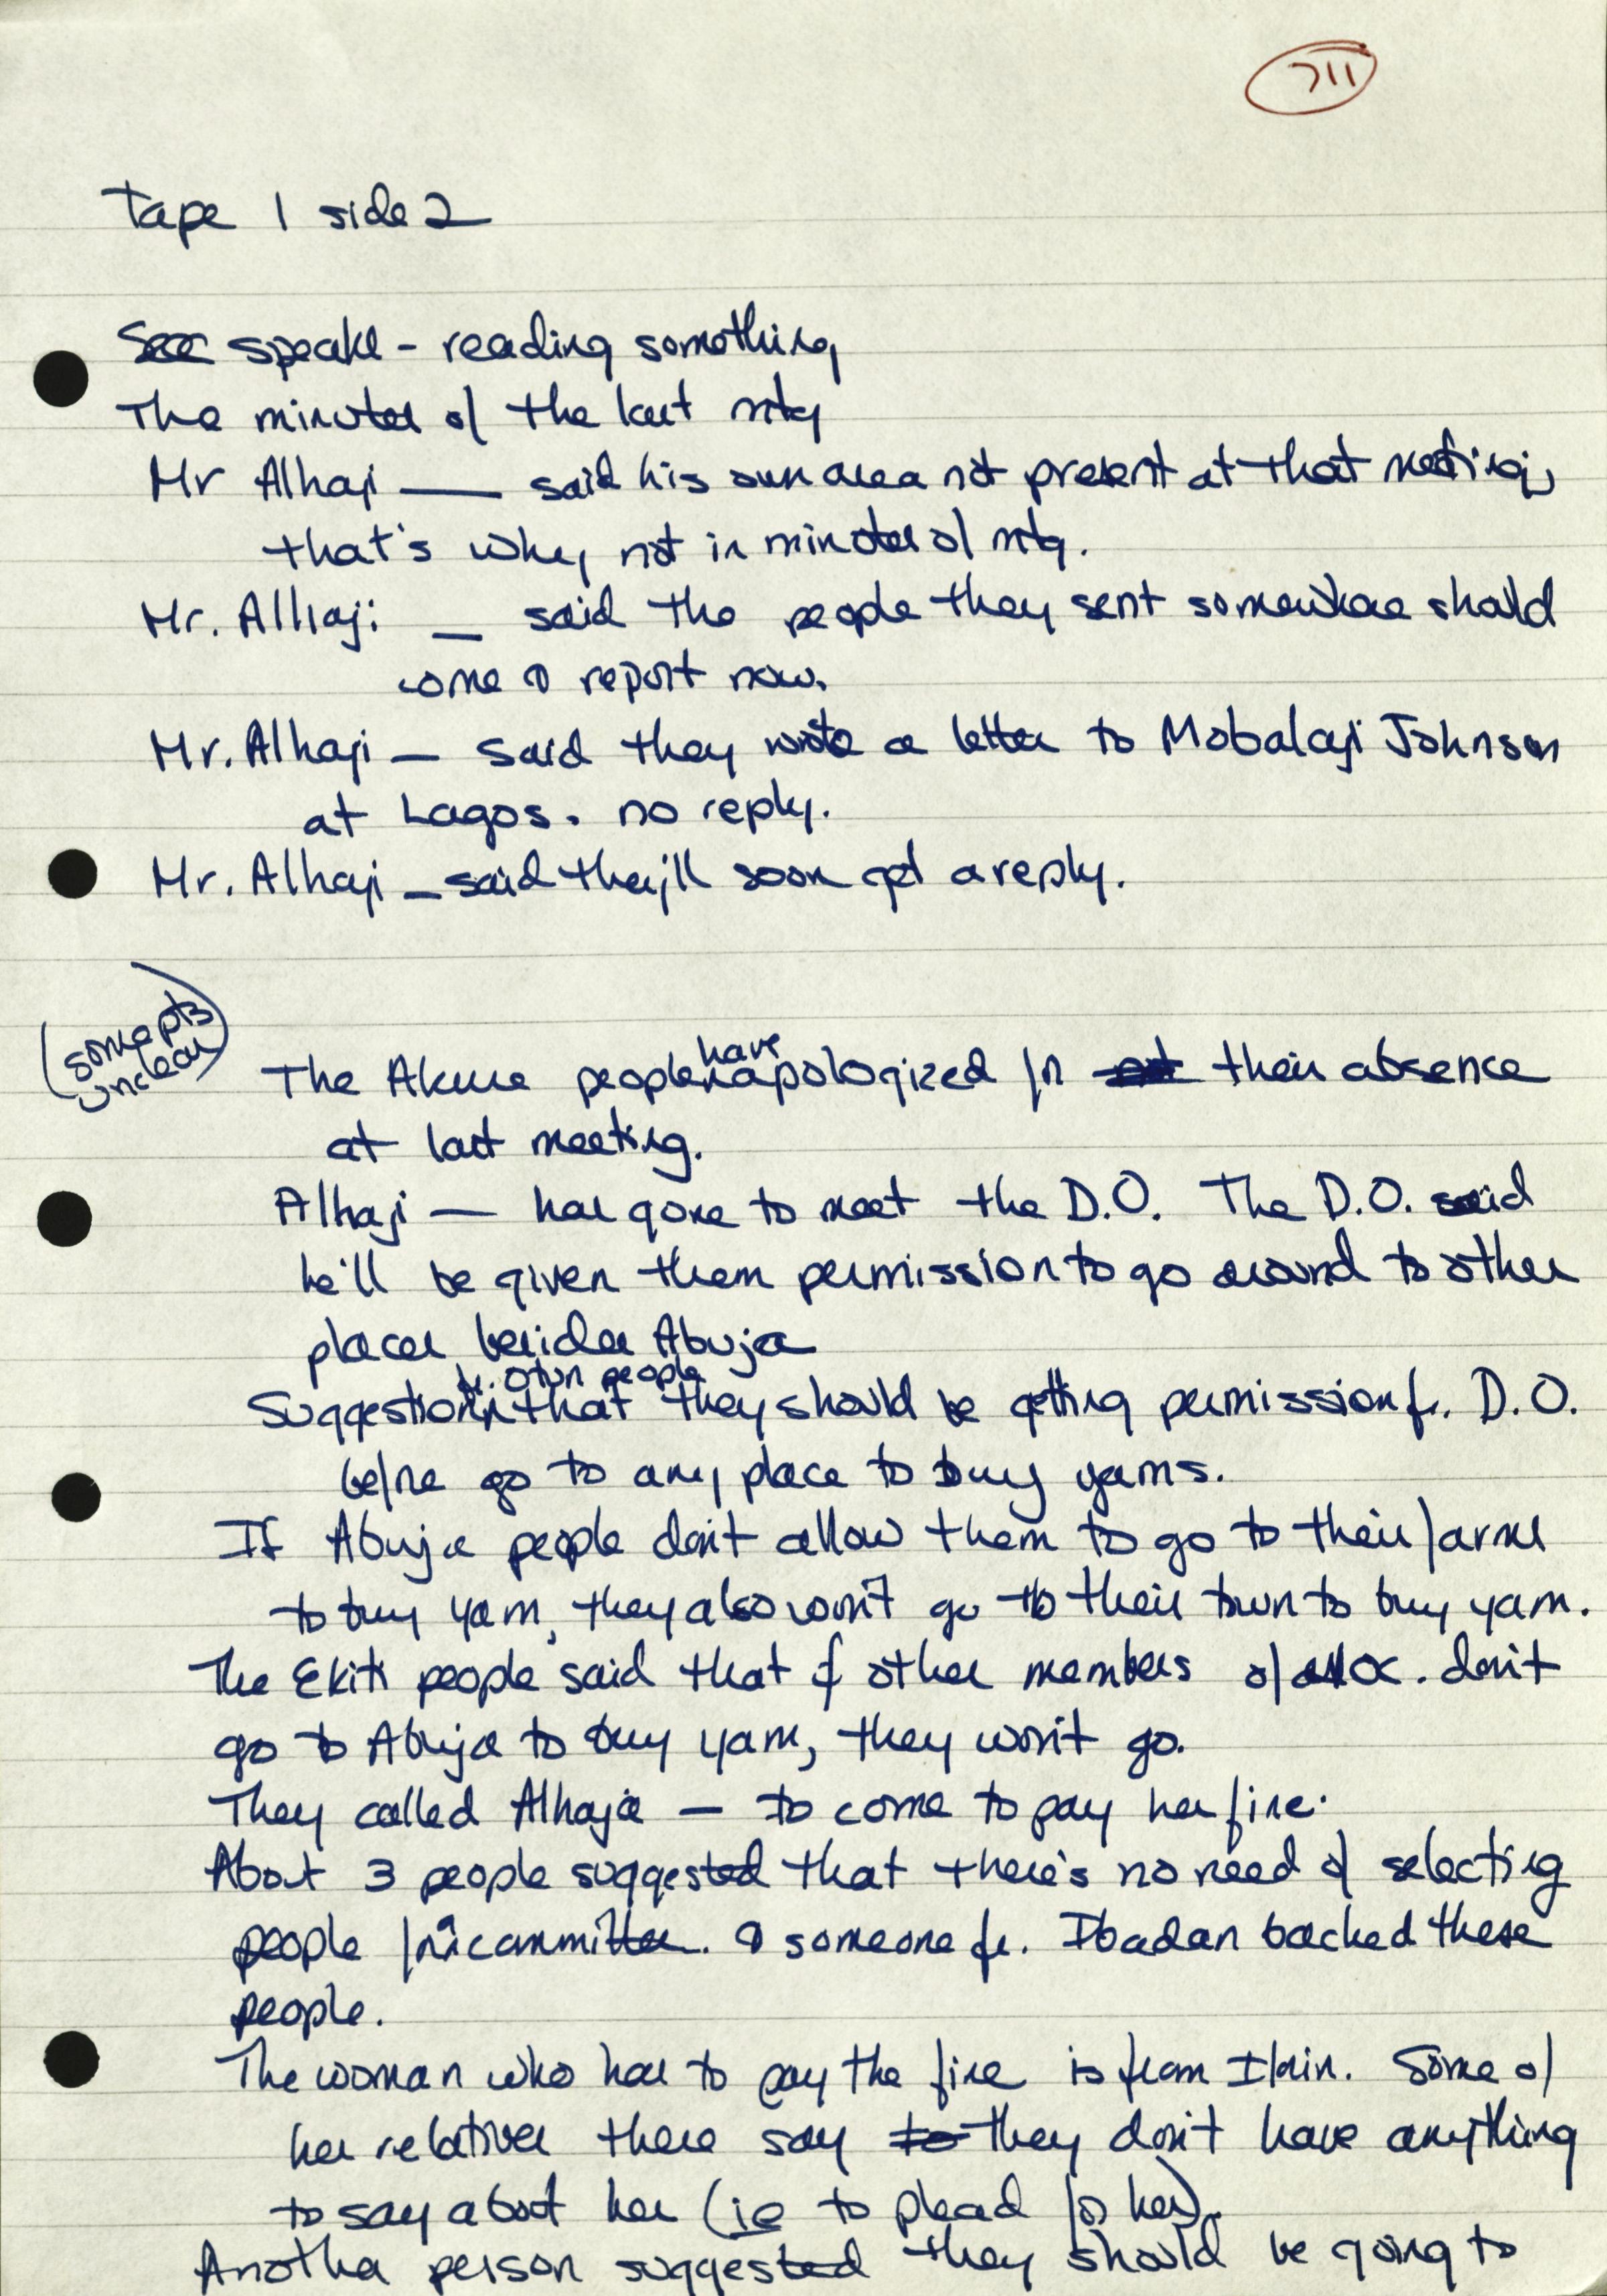 711
Tape 1 side 2
Sec speaks - reading something
The minutes of the last mtg
Mr Alhaji — said his own area not present at that meeting,
that's why not in minutes of mtg.
Mr. Alhaji — said the people they sent somewhere should
come & report now.
Mr. Alhaji — said they wrote a letter to Mobalaji Johnson
at Lagos. no reply.
Mr. Alhaji — said they'll soon get a reply.
(some pts
unclear)
The Akure people have apologized for their absence
at last meeting.
Alhaji — has gone to meet the D.O. The D.O. said
he'll be given them permission to go around to other
places besides Abuja
Suggestion fr. Otun people that they should be getting permission fr. D.O.
before go to any place to buy yams.
If Abuja people don't allow them to go to their farms
to buy yam, they also won't go to their town to buy yam.
The Ekiti people said that if other members of don't
go to Abuja to buy yam, they won't go.
They called Alhaja — to come to pay her fine.
About 3 people suggested that there's no need of selecting
people for a committee. & someone fr. Ibadan backed these
people.
The woman who has to pay the fine is from Ilorin. Some of
her relatives there say to they don't have anything
to say about her (ie to plead for her).
Another person suggested they should be going to